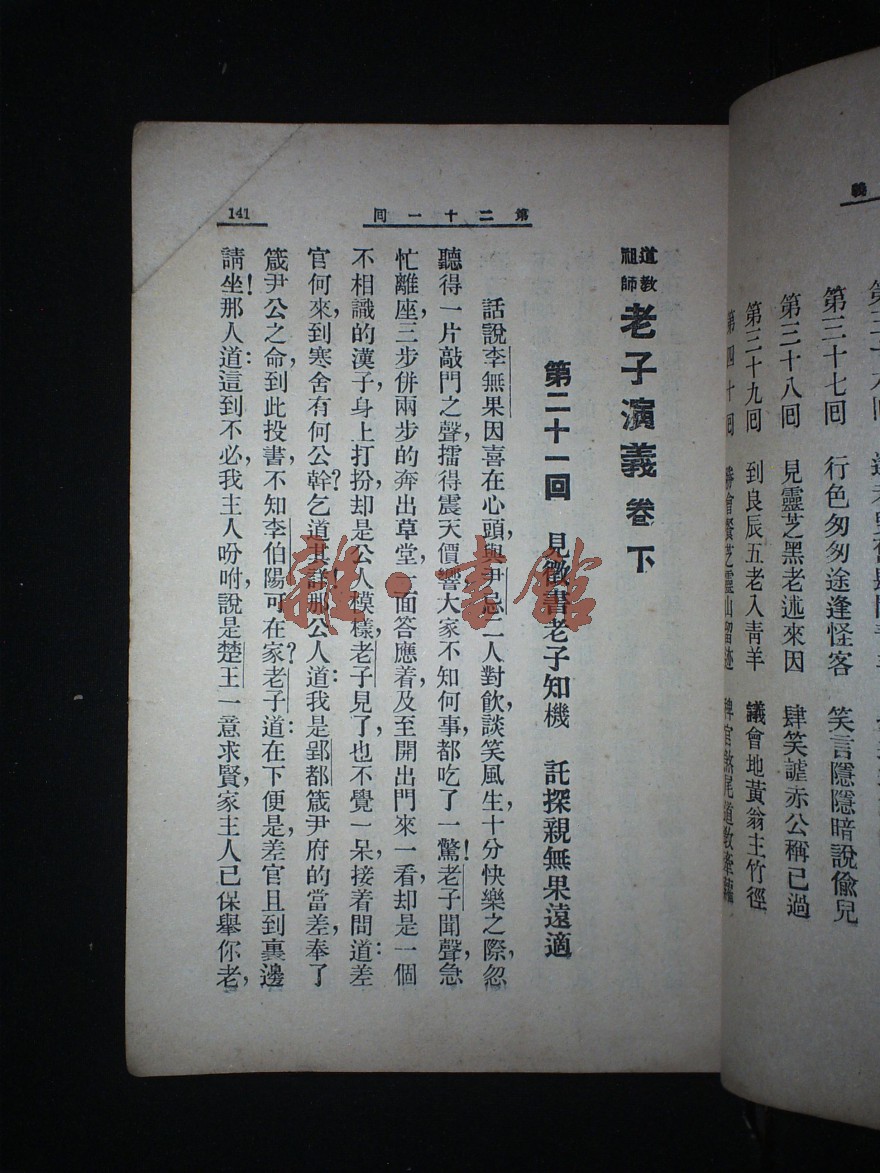 義
第三十七囘 行色匆匆途逢怪客 笑言隱隱暗說偸兒
第三十八囘 見靈芝黑老述來因 肆笑謔赤公稱已過
第三十九囘 到良辰五老入靑羊 議會地黃翁主竹徑
第四十囘 會餐芝靈山留跡 稗官煞尾道敎
第二十一回
141
道敎祖師 老子演義 卷下
第二十一回 見徵書老子知機 託探親無果遠適
話說李無果因喜在心頭,與尹忌二人對飮談笑風生,十分快樂之際,忽
聽得一片敲門之聲,擂得震天價響,大家不知何事,都吃了一驚!老子聞聲,急
忙離座,三步併兩步的奔出草堂,一面答應着,及至開出門來一看,却是一個
不相識的漢子,身上打扮,却是公人模樣,老子見了,也不覺一呆,接着問道:差
官何來,到寒舍有何公幹?乞道其詳!那公人道:我是郢都箴尹府的當差,奉了
箴尹公之命,到此投書,不知李伯陽可在家?老子道:在下便是,差官且到裏邊
請坐!那人道:這到不必,我主人吩咐,說是楚王一意求賢,家主人已保舉你老,
雜·書館